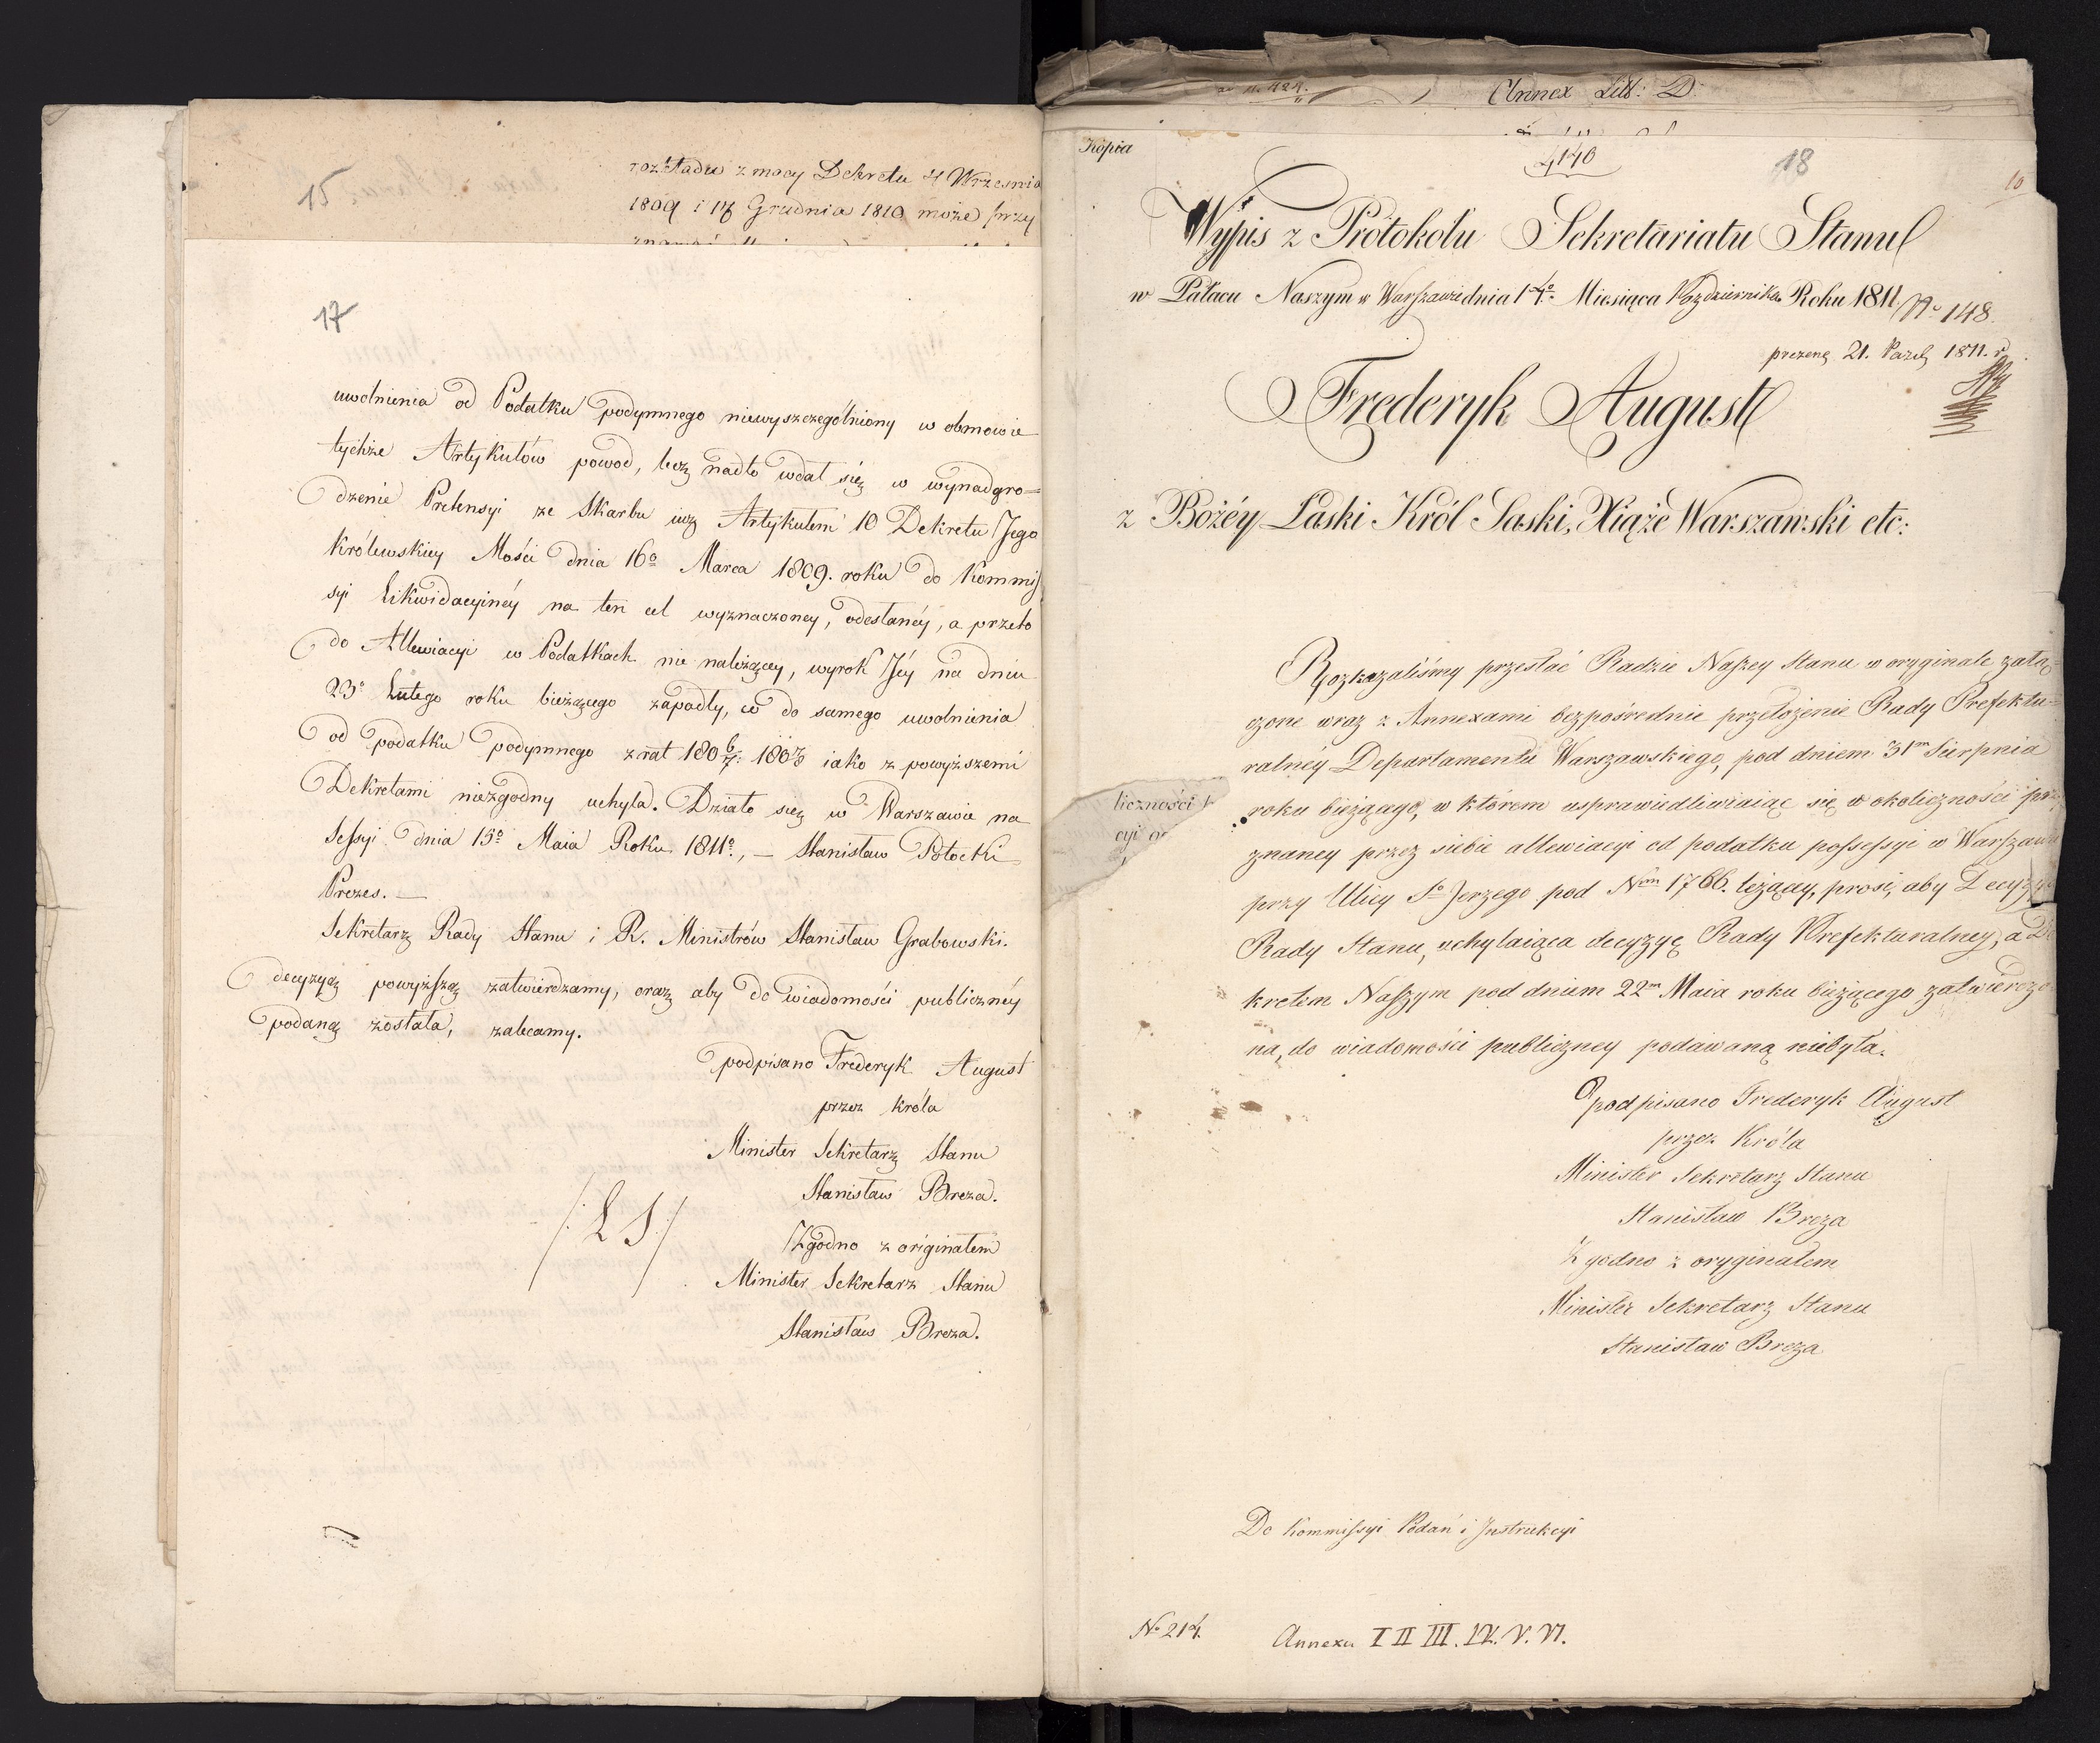 15
rozkładu z mocy Dekretu 4 Wrzesnia
1809 i 18 Grudnia 1810 może przy
17
uwolnienia od Podatku podymnego niewyszczególniony w obmowie
tychże Artykułów powod, lecz nadto wdał się w wynadgro=
dzenie Pretensyi ze Skarbu iuż Artykułem 10 Dekretu Jego
Królewskiey Mości dnia 16º Marca 1809. roku do Kommis
syi Likwidacyinéy na ten cel wyznaczoney, odesłanéy, a przeto
do Allewiacyi w Podatkach nie należącey, wyrok Jéy na dniu
23º Lutego roku bieżącego zapadły, co do samego uwolnienia
od podatku podymnego z rat 180 6/7. 180 7/8 iako z powyższemi
Dekretami niezgodny uchyla. Działo się w Warszawie na
Sessyi dnia 15º Maia Roku 1811º., — Stanisław Potocki
Prezes. —
Sekretarz Rady Stanu i R. Ministrów Stanisław Grabowski.
decyzyą powyższą zatwierdzamy, oraz aby do wiadomości publicznéy
podaną została, zalecamy.
podpisano Frederyk August
przez Króla
Minister Sekretarz Stanu
Stanisław Breza.
/: L S :/
Zgodno z originałem
Minister Sekretarz Stanu
Stanisław Breza.
Annex Litt: D:
Kopia
4140
18
10
Wypis z Protokołu Sekretariatu Stanu
w Pałacu Naszym w Warszawie dnia 14º Miesiąca Października Roku 1811 Nº 148.
prezenˢ 21. Paźd 1811. r.
Frederyk August
z Bożéy Łaski Król Saski, Xiąże Warszawski etc:
Rozkazaliśmy przesłać Radzie Naszey Stanu w oryginale załą=
czone wraz z Annexami bezpośrednie przełożenie Rady Prefektu=
ralnéy Departamentu Warszawskiego, pod dniem 31ᵐ Sierpnia
roku bieżącego, w którem usprawiedliwiaiąc się w okoliczności prz
znaney przez siebie allewiacyi od podatku possessyi w Warszawie
przy Ulicy Sº Jerzego pod Nrm 1766. leżącey, prosi, aby Decyzya
Rady Stanu, uchylaiąca decyzyę Rady Prefekturalney, a De
kretem Naszym pod dniem 22ᵐ Maia roku bieżącego zatwierdzo
na, do wiadomości publiczney podawaną niebyła.
liczności
cyi
podpisano Frederyk August
przez Króla
Minister Sekretarz Stanu
Stanisław Breza
Zgodno z oryginałem
Minister Sekretarz Stanu
Stanisław Breza
Do Kommissyi Podań i Instrukcyi
Nº 214.
Annexa I II III. IV. V. VI.